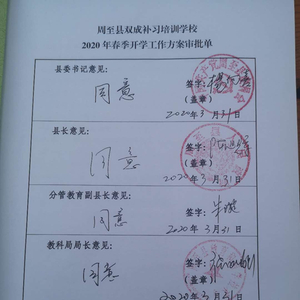 周至县双成补习培训学校
2020年春季开学工作方案审批单
县委书记意见：
同意
签字：
（盖章）
2020年3月31日
县长意见：
同意
签字：
（盖章）
2020年3月31日
分管教育副县长意见：
同意
签字：
2020年3月31日
教科局局长意见：
同意
签字：
（盖章）
2020年3月31日